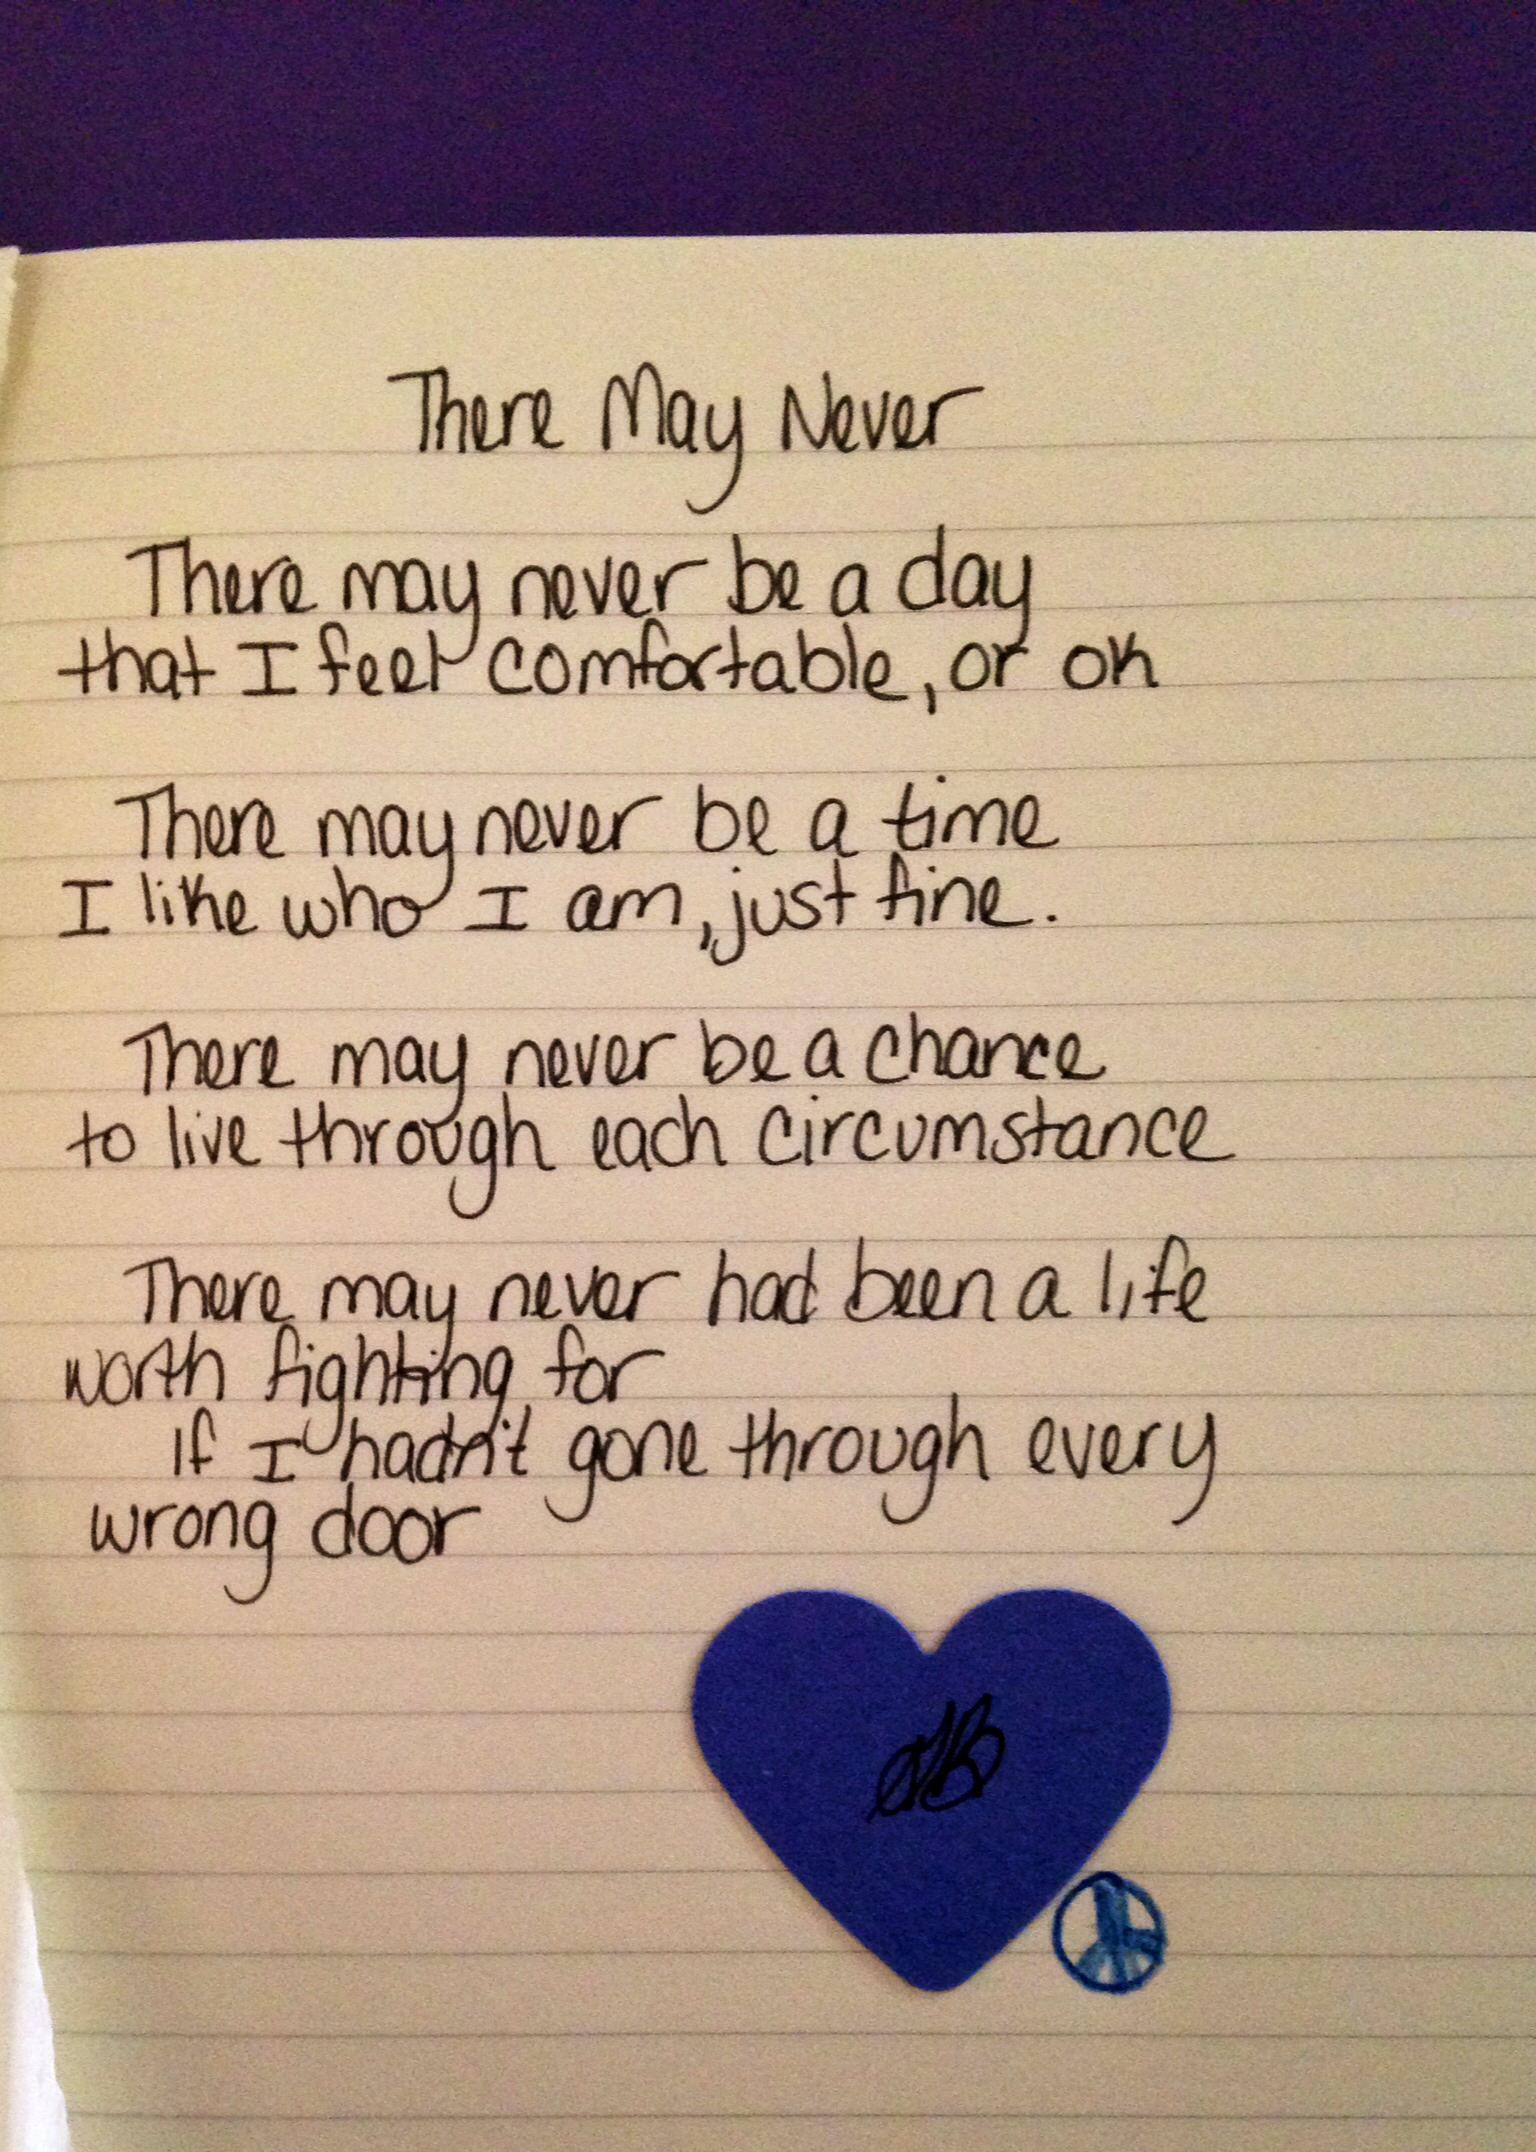 There May Never
There may never be a day
that I feel comfortable, or ok
There may never be a time
I like who I am, just fine.
There may never be a chance
to live through each circumstance
There may never had been a life
worth fighting for
If I hadn't gone through every
wrong door